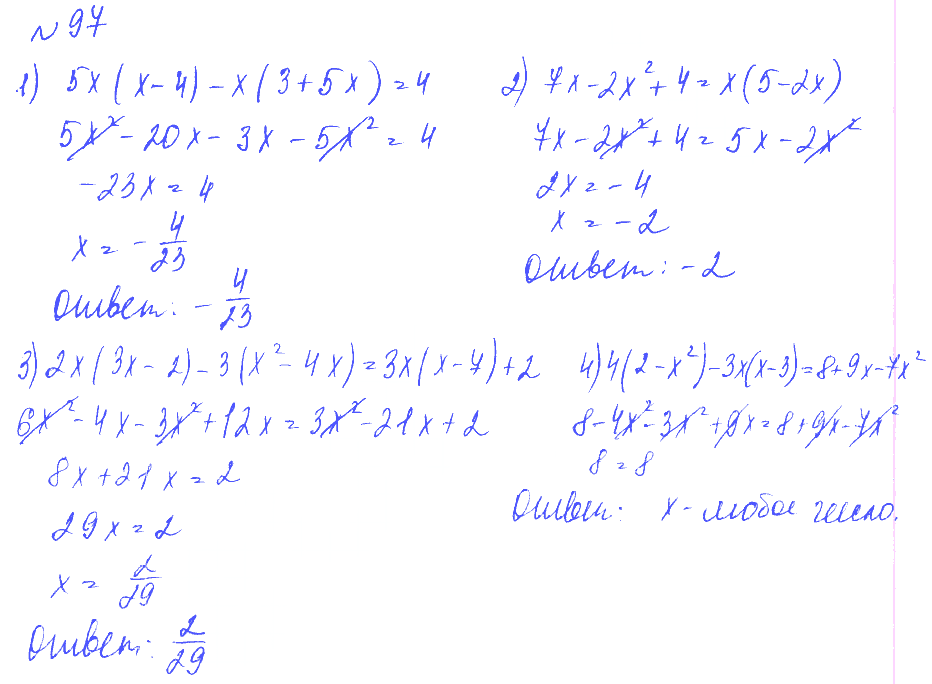 № 97
1) 5x(x-4)-x(3+5x)=4
5x²-20x-3x-5x²=4
-23x=4
x=-4/23
Ответ: -4/23
2) 7x-2x²+4=x(5-2x)
7x-2x²+4=5x-2x²
2x=-4
x=-2
Ответ: -2
3) 2x(3x-2)-3(x²-4x)=3x(x-7)+2
6x²-4x-3x²+12x=3x²-21x+2
8x+21x=2
29x=2
x=2/29
Ответ: 2/29
4) 4(2-x²)-3x(x-3)=8+9x-7x²
8-4x²-3x²+9x=8+9x-7x²
8=8
Ответ: x-любое число.